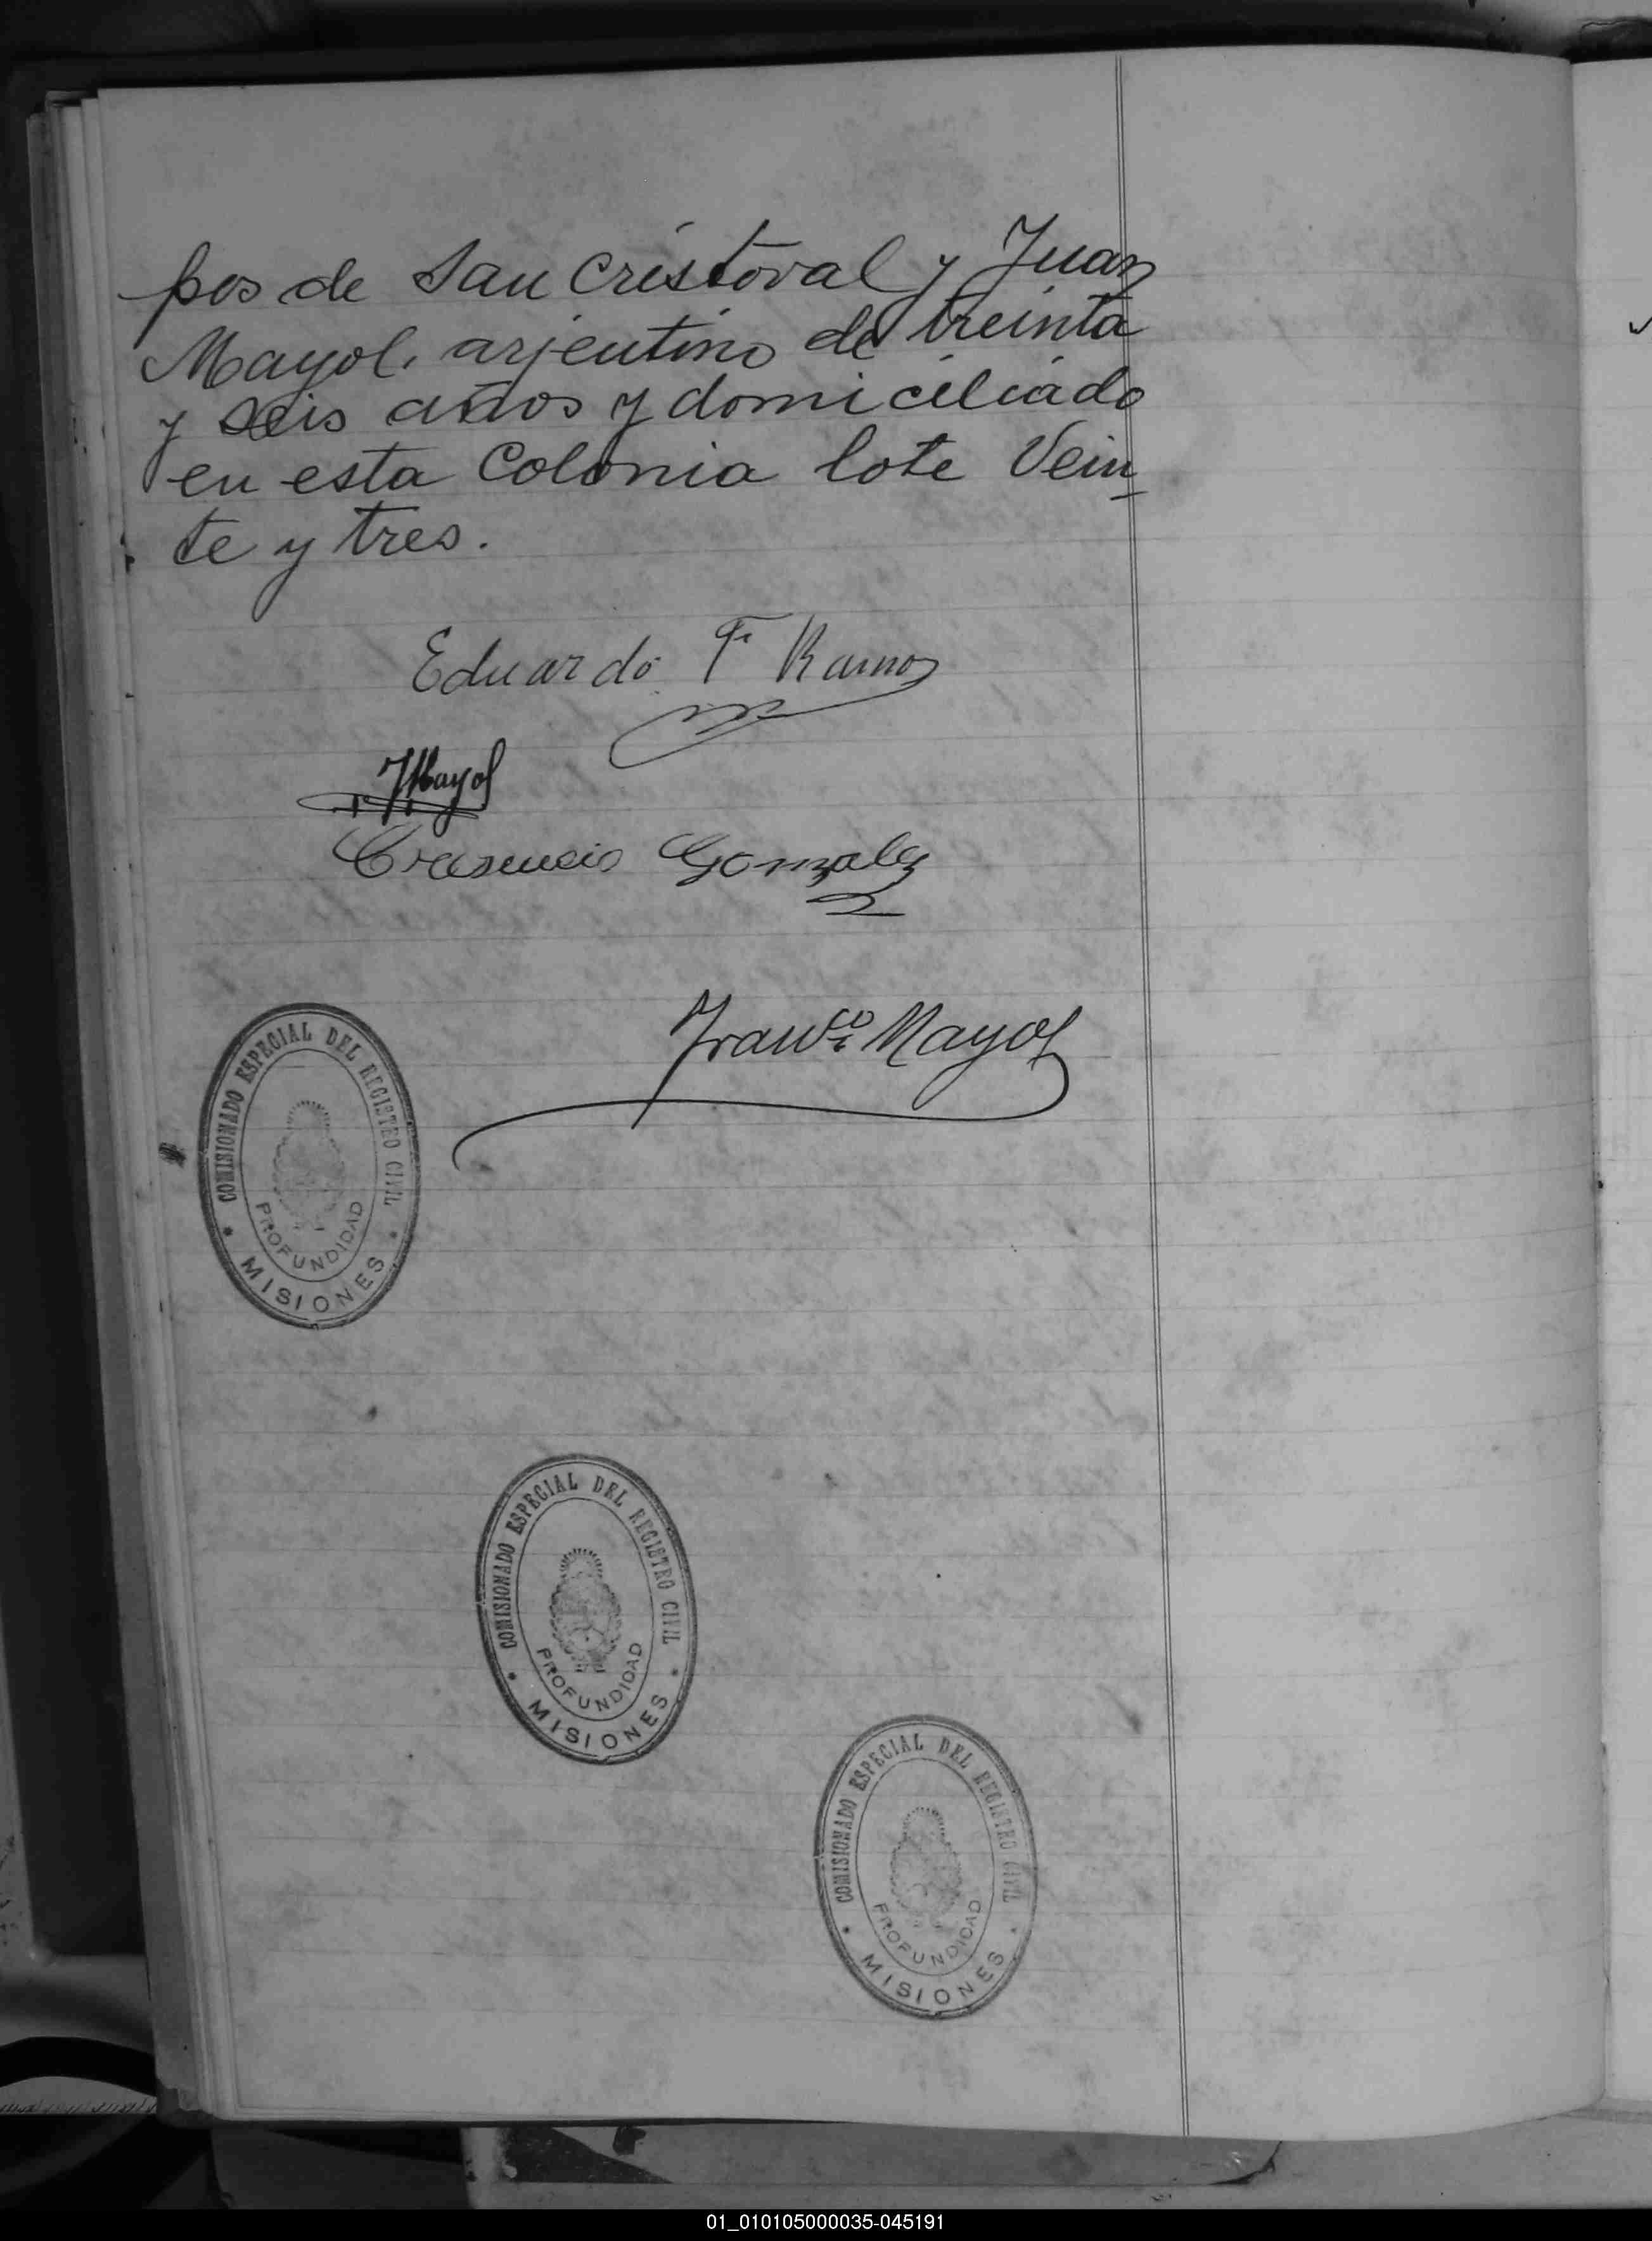 pos de San Cristoval y Juan
Mayol, arjentino de treinta
y seis años y domiciliado
en esta Colonia lote Vein-
te y tres.
Eduardo F Ramos
JMayol
Cresencio Gonzalez
Franco Mayol
COMISIONADO ESPECIAL DEL REGISTRO CIVIL
PROFUNDIDAD
* MISIONES *
COMISIONADO ESPECIAL DEL REGISTRO CIVIL
PROFUNDIDAD
* MISIONES *
COMISIONADO ESPECIAL DEL REGISTRO CIVIL
PROFUNDIDAD
* MISIONES *
01_010105000035-045191